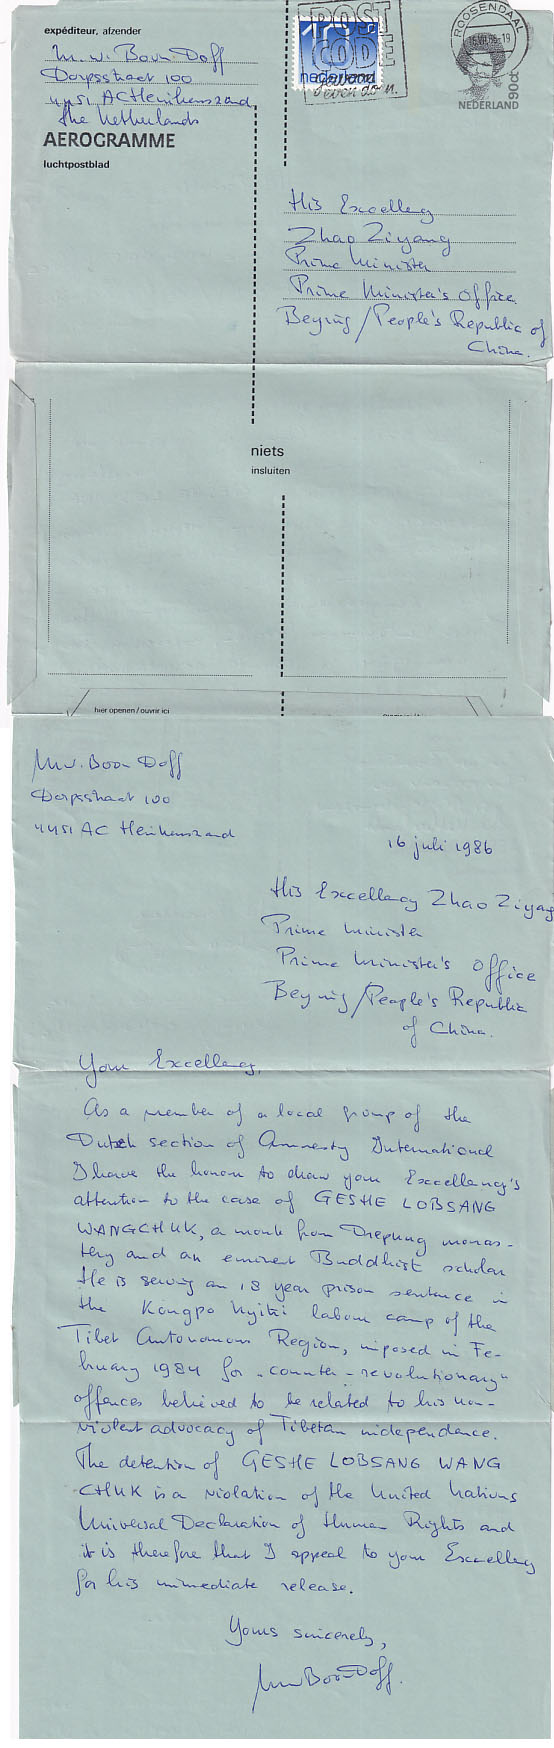 expéditeur, afzender
M. W. Boon Doff
Dorpsstraat 100
4451 AC Heinkenszand
The Netherlands
AEROGRAMME
luchtpostblad
POST
CODE
nederland
ROOSENDAAL
90ct
NEDERLAND
His Excellency
Zhao Ziyang
Prime Minister
Prime Minister's Office
Beying / People's Republic of
China.
niets
insluiten
hier openen / ouvrir ici
Boon Doff
Dorpsstraat 100
4451 AC Heinkenszand
16 juli 1986
His Excellency Zhao Ziyang
Prime Minister
Prime Minister's Office
Beying / People's Republic
of China.
Your Excellency,
As a member of a local group of the
Dutch section of Amnesty International
I have the honour to draw your Excellency's
attention to the case of GESHE LOBSANG
WANGCHUK, a monk from Drepung monas-
tery and an eminent Buddhist scholar
He is serving an 18 year prison sentence in
the Kongpo Nyitri labour camp of the
Tibet Autonomous Region, imposed in Fe-
bruary 1984 for „counter-revolutionary"
offences believed to be related to his non-
violent advocacy of Tibetan independence.
The detention of GESHE LOBSANG WANG
CHUK is a violation of the United Nations
Universal Declaration of Human Rights and
it is therefore that I appeal to your Excellency
for his immediate release.
Yours sincerely,
Boon Doff.